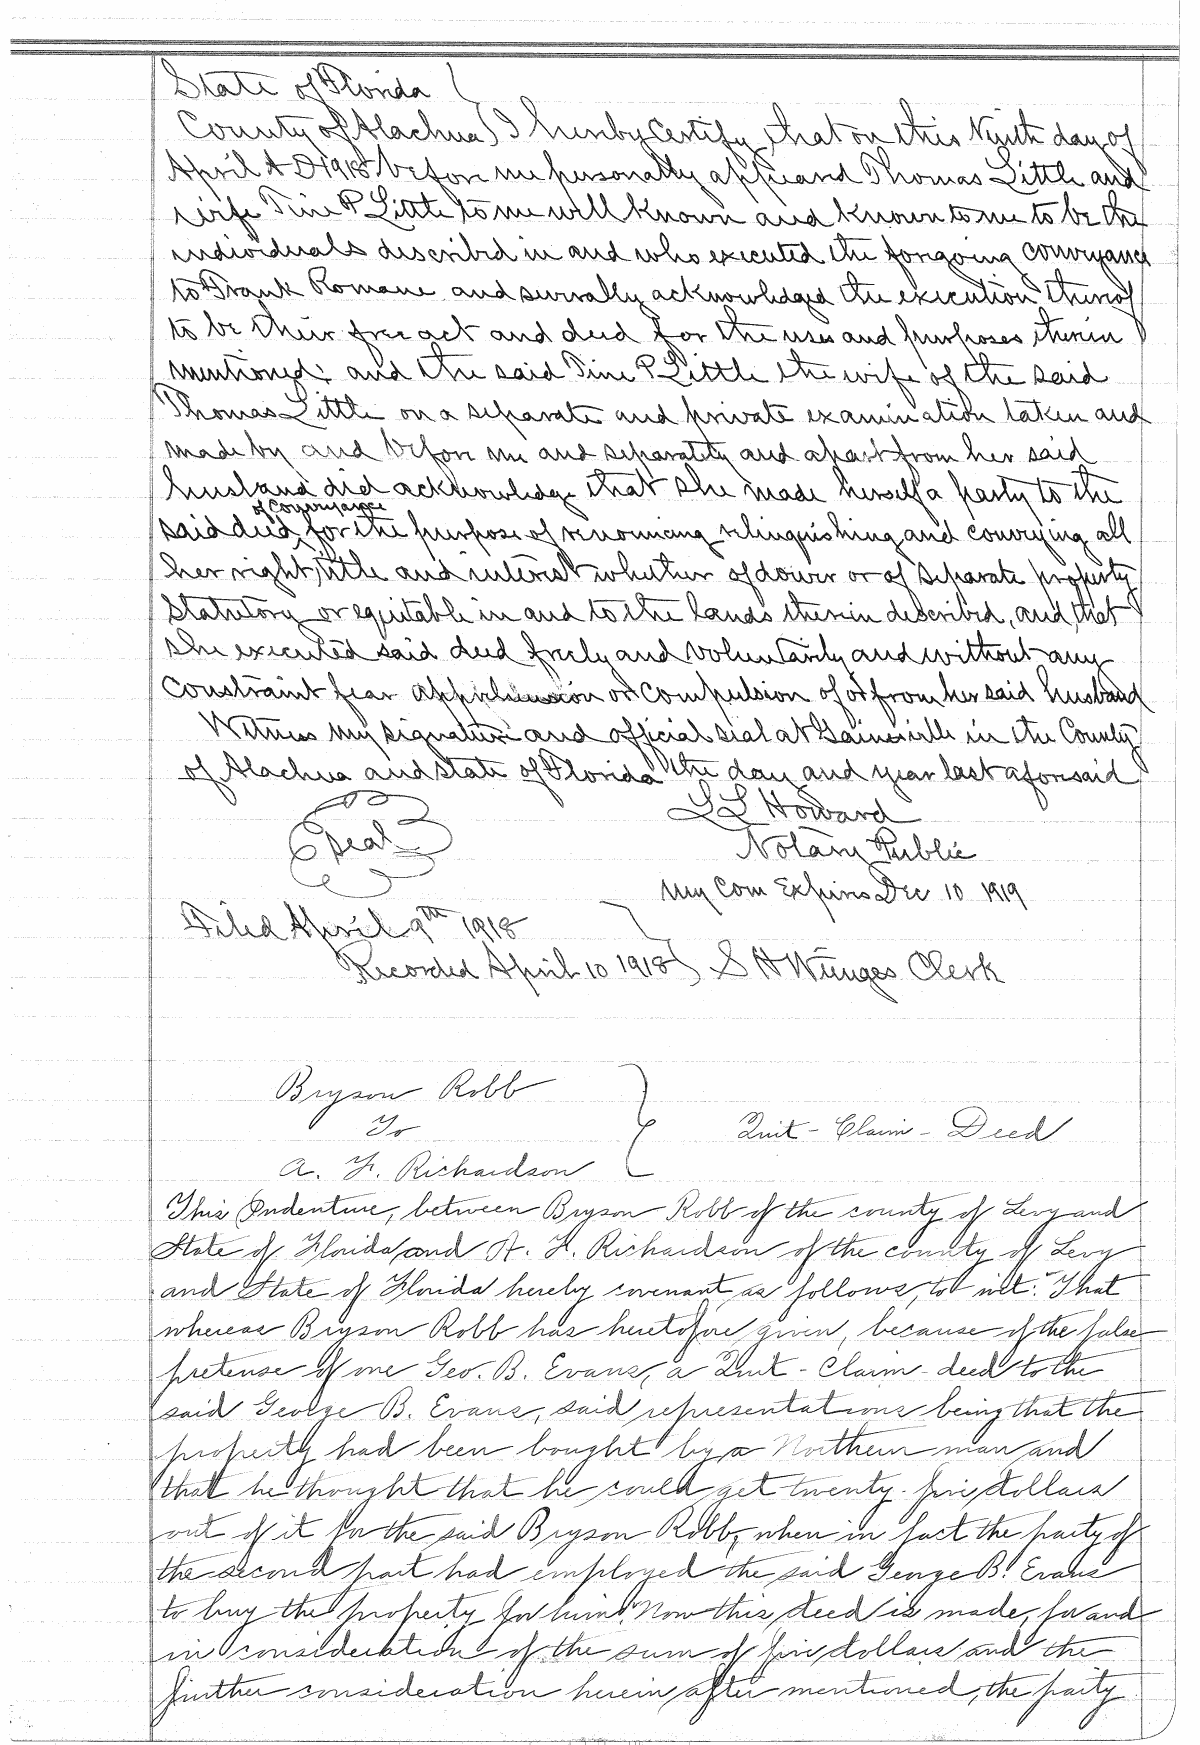 State of Florida
County of Alachua) I hereby certify, that on this Ninth day of
April A D 1918 before me personally appeared Thomas Little and
wife Tine P Little to me well known and known to me to be the
individuals described in and who executed the forgoing conveyance
to Frank Romane and severally acknowledged the execution thereof
to be their free act and deed for the uses and purposes therein
mentioned: and the said Tine P Little the wife of the said
Thomas Little on a separate and private examination taken and
made by and before me and separately and apart from her said
husband did acknowledge that she made herself a party to the
of conveyance
said deed, for the purpose of renouncing relinquishing and conveying all
her right, title and interest whether of dower or of separate property
Statutory or equitable in and to the lands therein described, and, that
she executed said deed freely and voluntarily and without any
constraint fear apprehension or compulsion of or from her said husband
Witness my signature and official seal at Gainesville in the County
of Alachua and state of Florida the day and year last aforesaid
L L Howard
Seal
Notary Public
My Com Expires Dec 10 1919
Filed April 9th 1918
Recorded April 10 1918} S H Wienges Clerk
Bryson Robb
To
Quit - Claim - Deed
A. F. Richardson
This Indenture, between Bryson Robb of the county of Levy and
State of Florida and A. F. Richardson of the county of Levy
and State of Florida hereby covenant as follows, to wit: That
whereas Bryson Robb has heretofore given, because of the false
pretense of one Geo. B. Evans, a Quit - Claim - deed to the
said George B. Evans, said representations being that the
property had been bought by a Northern man and
that he thought that he could get twenty-five dollars
out of it for the said Bryson Robb, when in fact the party of
the second part had employed the said George B. Evans
to buy the property for him. Now this deed is made, for and
in consideration of the sum of five dollars and the
further consideration herein after mentioned, the party